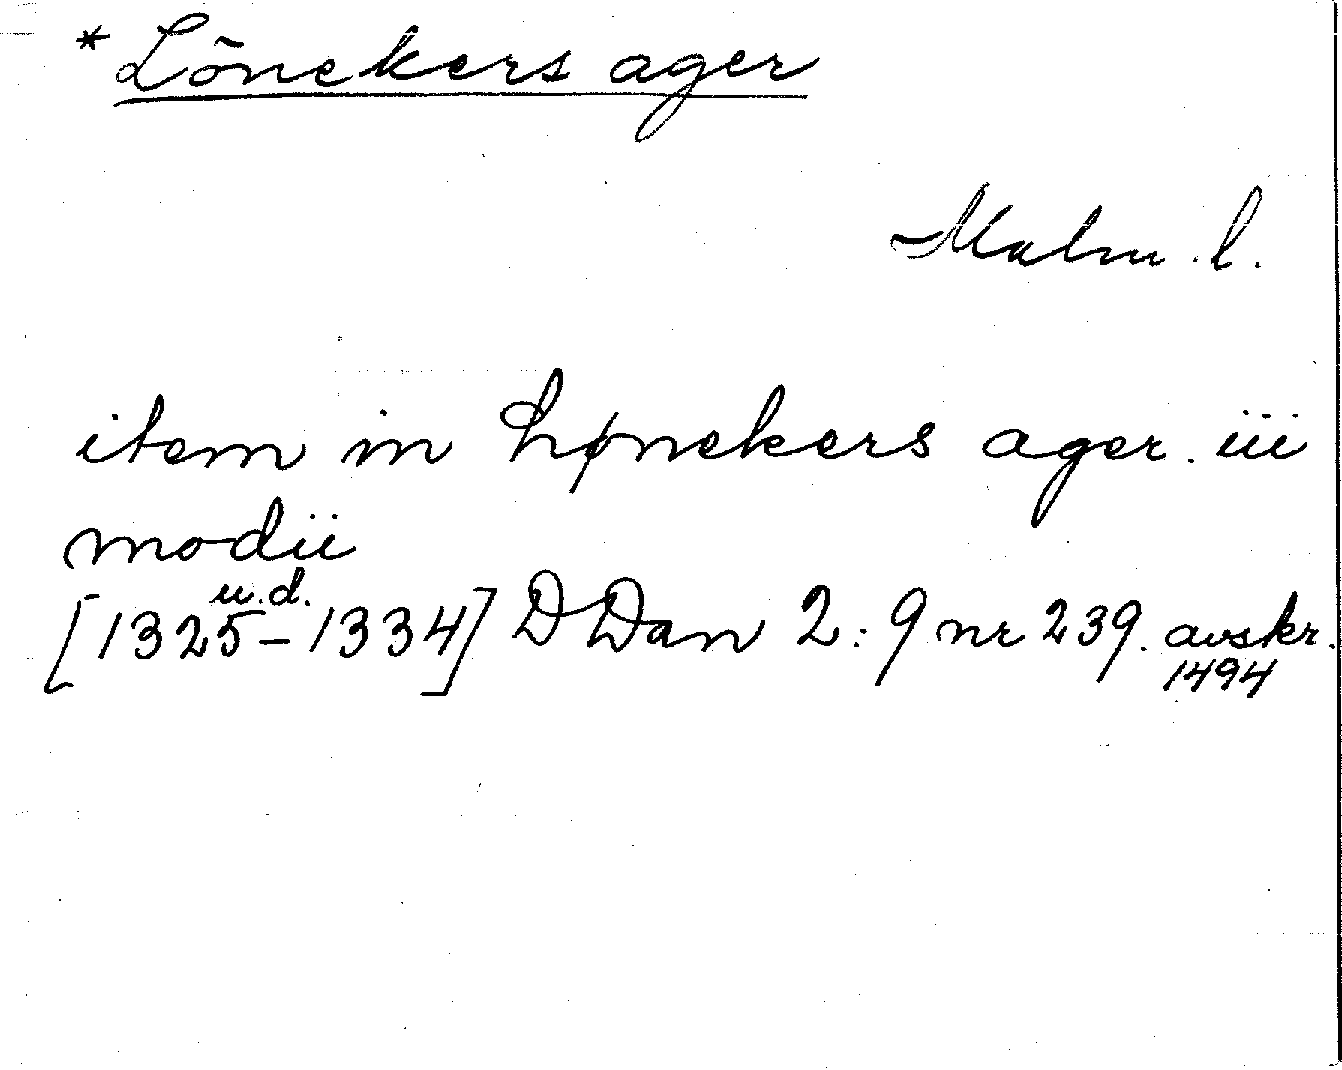 * Lönekers ager
Malm. l.
item in Lønekers ager. iii
modii
[1325 u.d. - 1334] D Dan 2:9 nr 239. avskr.
1494